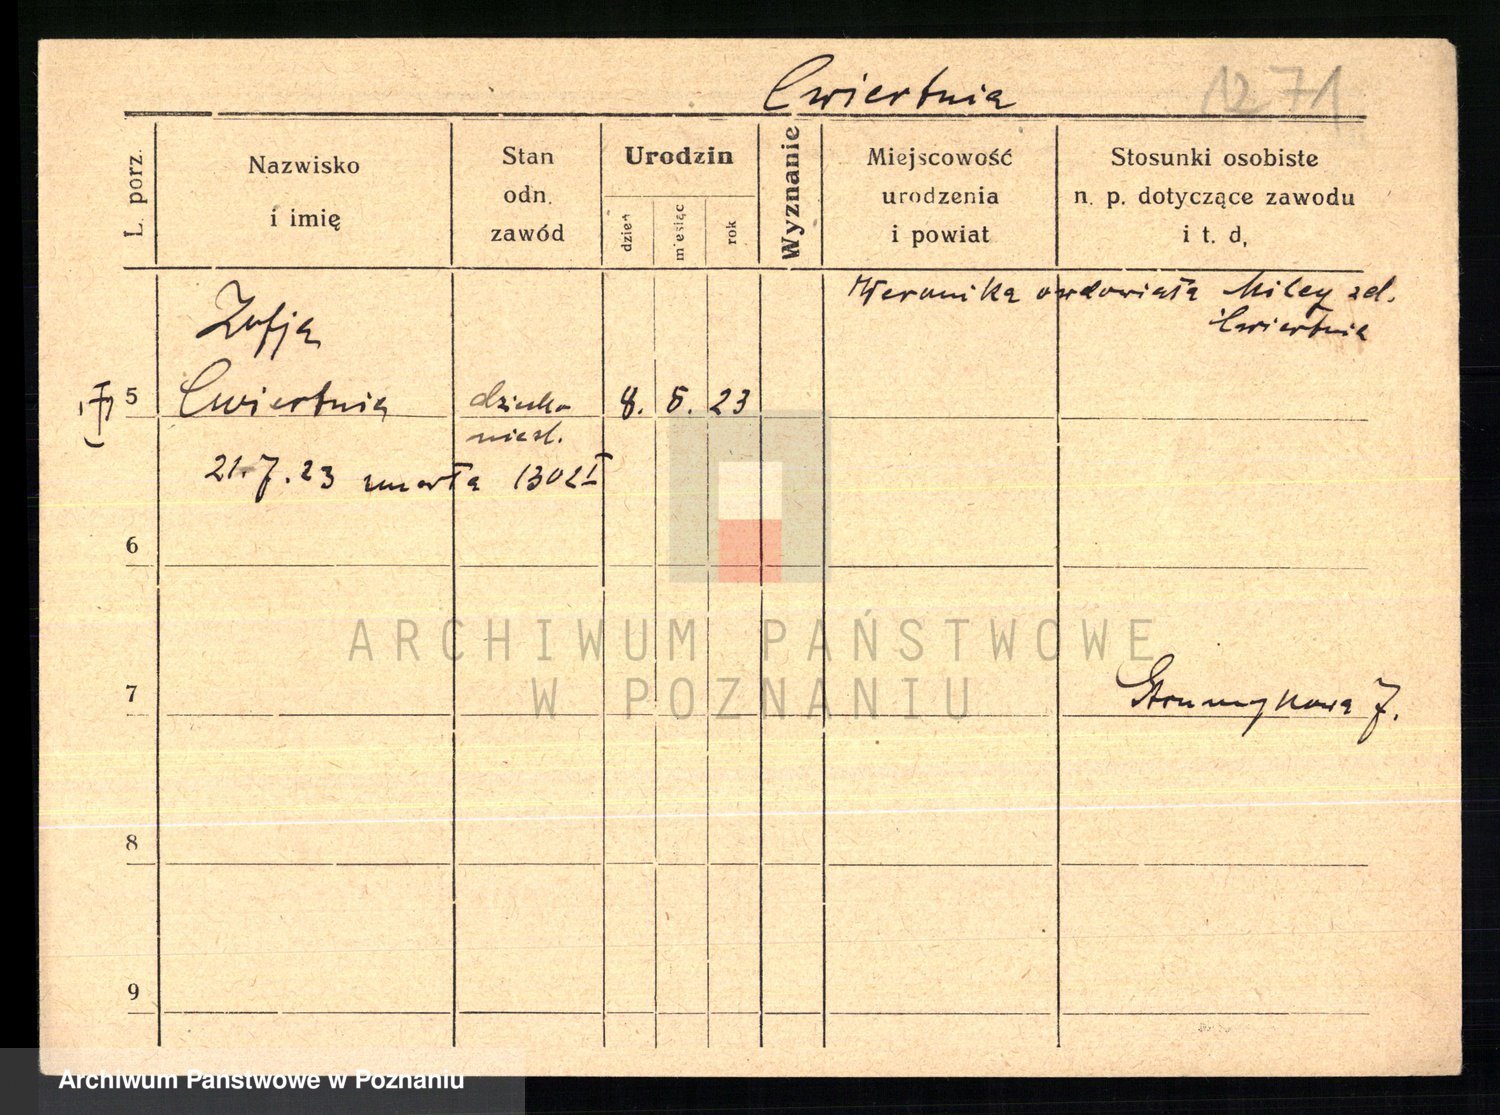 Cwiertnia 1271
L. porz.
Nazwisko
i imię
Stan
odn.
zawód
Urodzin
dzień
miesiąc
rok
Wyznanie
Miejscowość
urodzenia
i powiat
Stosunki osobiste
n. p. dotyczące zawodu
i t. d,
Weronika owdowiała Miley zd.
Cwiertnia
Zofja
5 Cwiertnia dziecko 8. 5. 23
niesl.
21.7.23 umarła 1302 I
6
ARCHIWUM PAŃSTWOWE
W POZNANIU
7
8
9
Archiwum Państwowe w Poznaniu